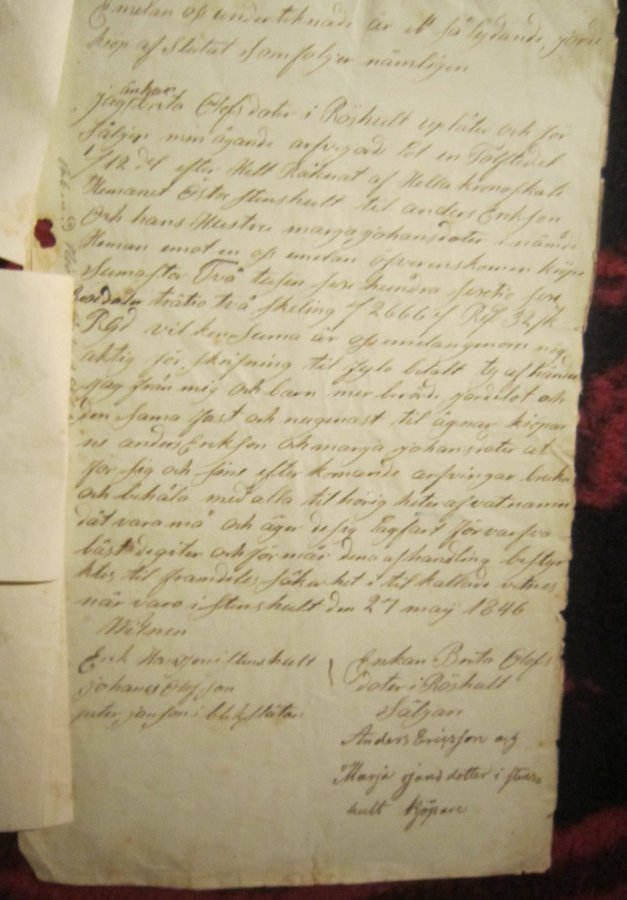 Emelan oss underteknade är ett så lydande jorde
kiöp af slutat som följer nämligen
Enkan
jag Brita Olofsdoter i Röshult uplåter och för
säljer min ägande arfvejords lot en Tålftedel
1/12 dl efter Helt Räknat af Hella kronoskatte
Hemanet Östra stenshult til anders Erikson
Och hans Hustru marja johansdoter i nämde
Heman emot en os emelan öfverenskomen kiöpe
Suma stor Två tusen sex hundra sextio sex
Rixsdaler tratio två skeling // 2666 // Rd 32 sk
RGd vilken Suma är os emelan genom
aktig för skrifning til fylo betalt ty afhänder
jag från mig och barn mer berörde jordelot och
den sama fast och nu genast til ägnar kiöpar
ne anders Erikson och marja johansdoter at
för sig och sine efter komande arfvingar bruka
och behåla med alla til hörig heter af vat namn
dät vara må och äger de sig Lagfart förvarfva
bäst de giter och för mär dena afhandling bestyr
ktes til framdeles säker het i til kallade vitnes
när varo i stenshult den 27 maÿ 1846
Vitnen
Erik i stenshult
johanes Olofson
peter janson i
Enkan Brita Olofs
doter i Röshult
Säljare
Anders Ericsson och
Marja dotter i stens
hult Kjöpare